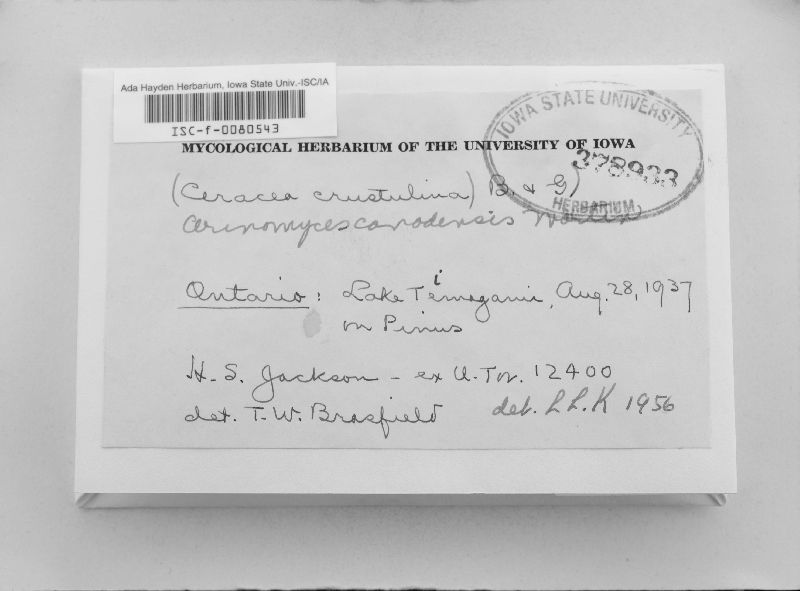 Ada Hayden Herbarium, Iowa State Univ.-ISC/IA
ISC-f-0080543
IOWA STATE UNIVERSITY
378933
HERBARIUM
MYCOLOGICAL HERBARIUM OF THE UNIVERSITY OF IOWA
(Ceracea crustulina) B. & G)
canadensis
Ontario: Lake Timagami, Aug. 28, 1937
on Pinus
H. S. Jackson - ex U. Tor. 12400
det. T. W. Brasfield
det. L L. K 1956